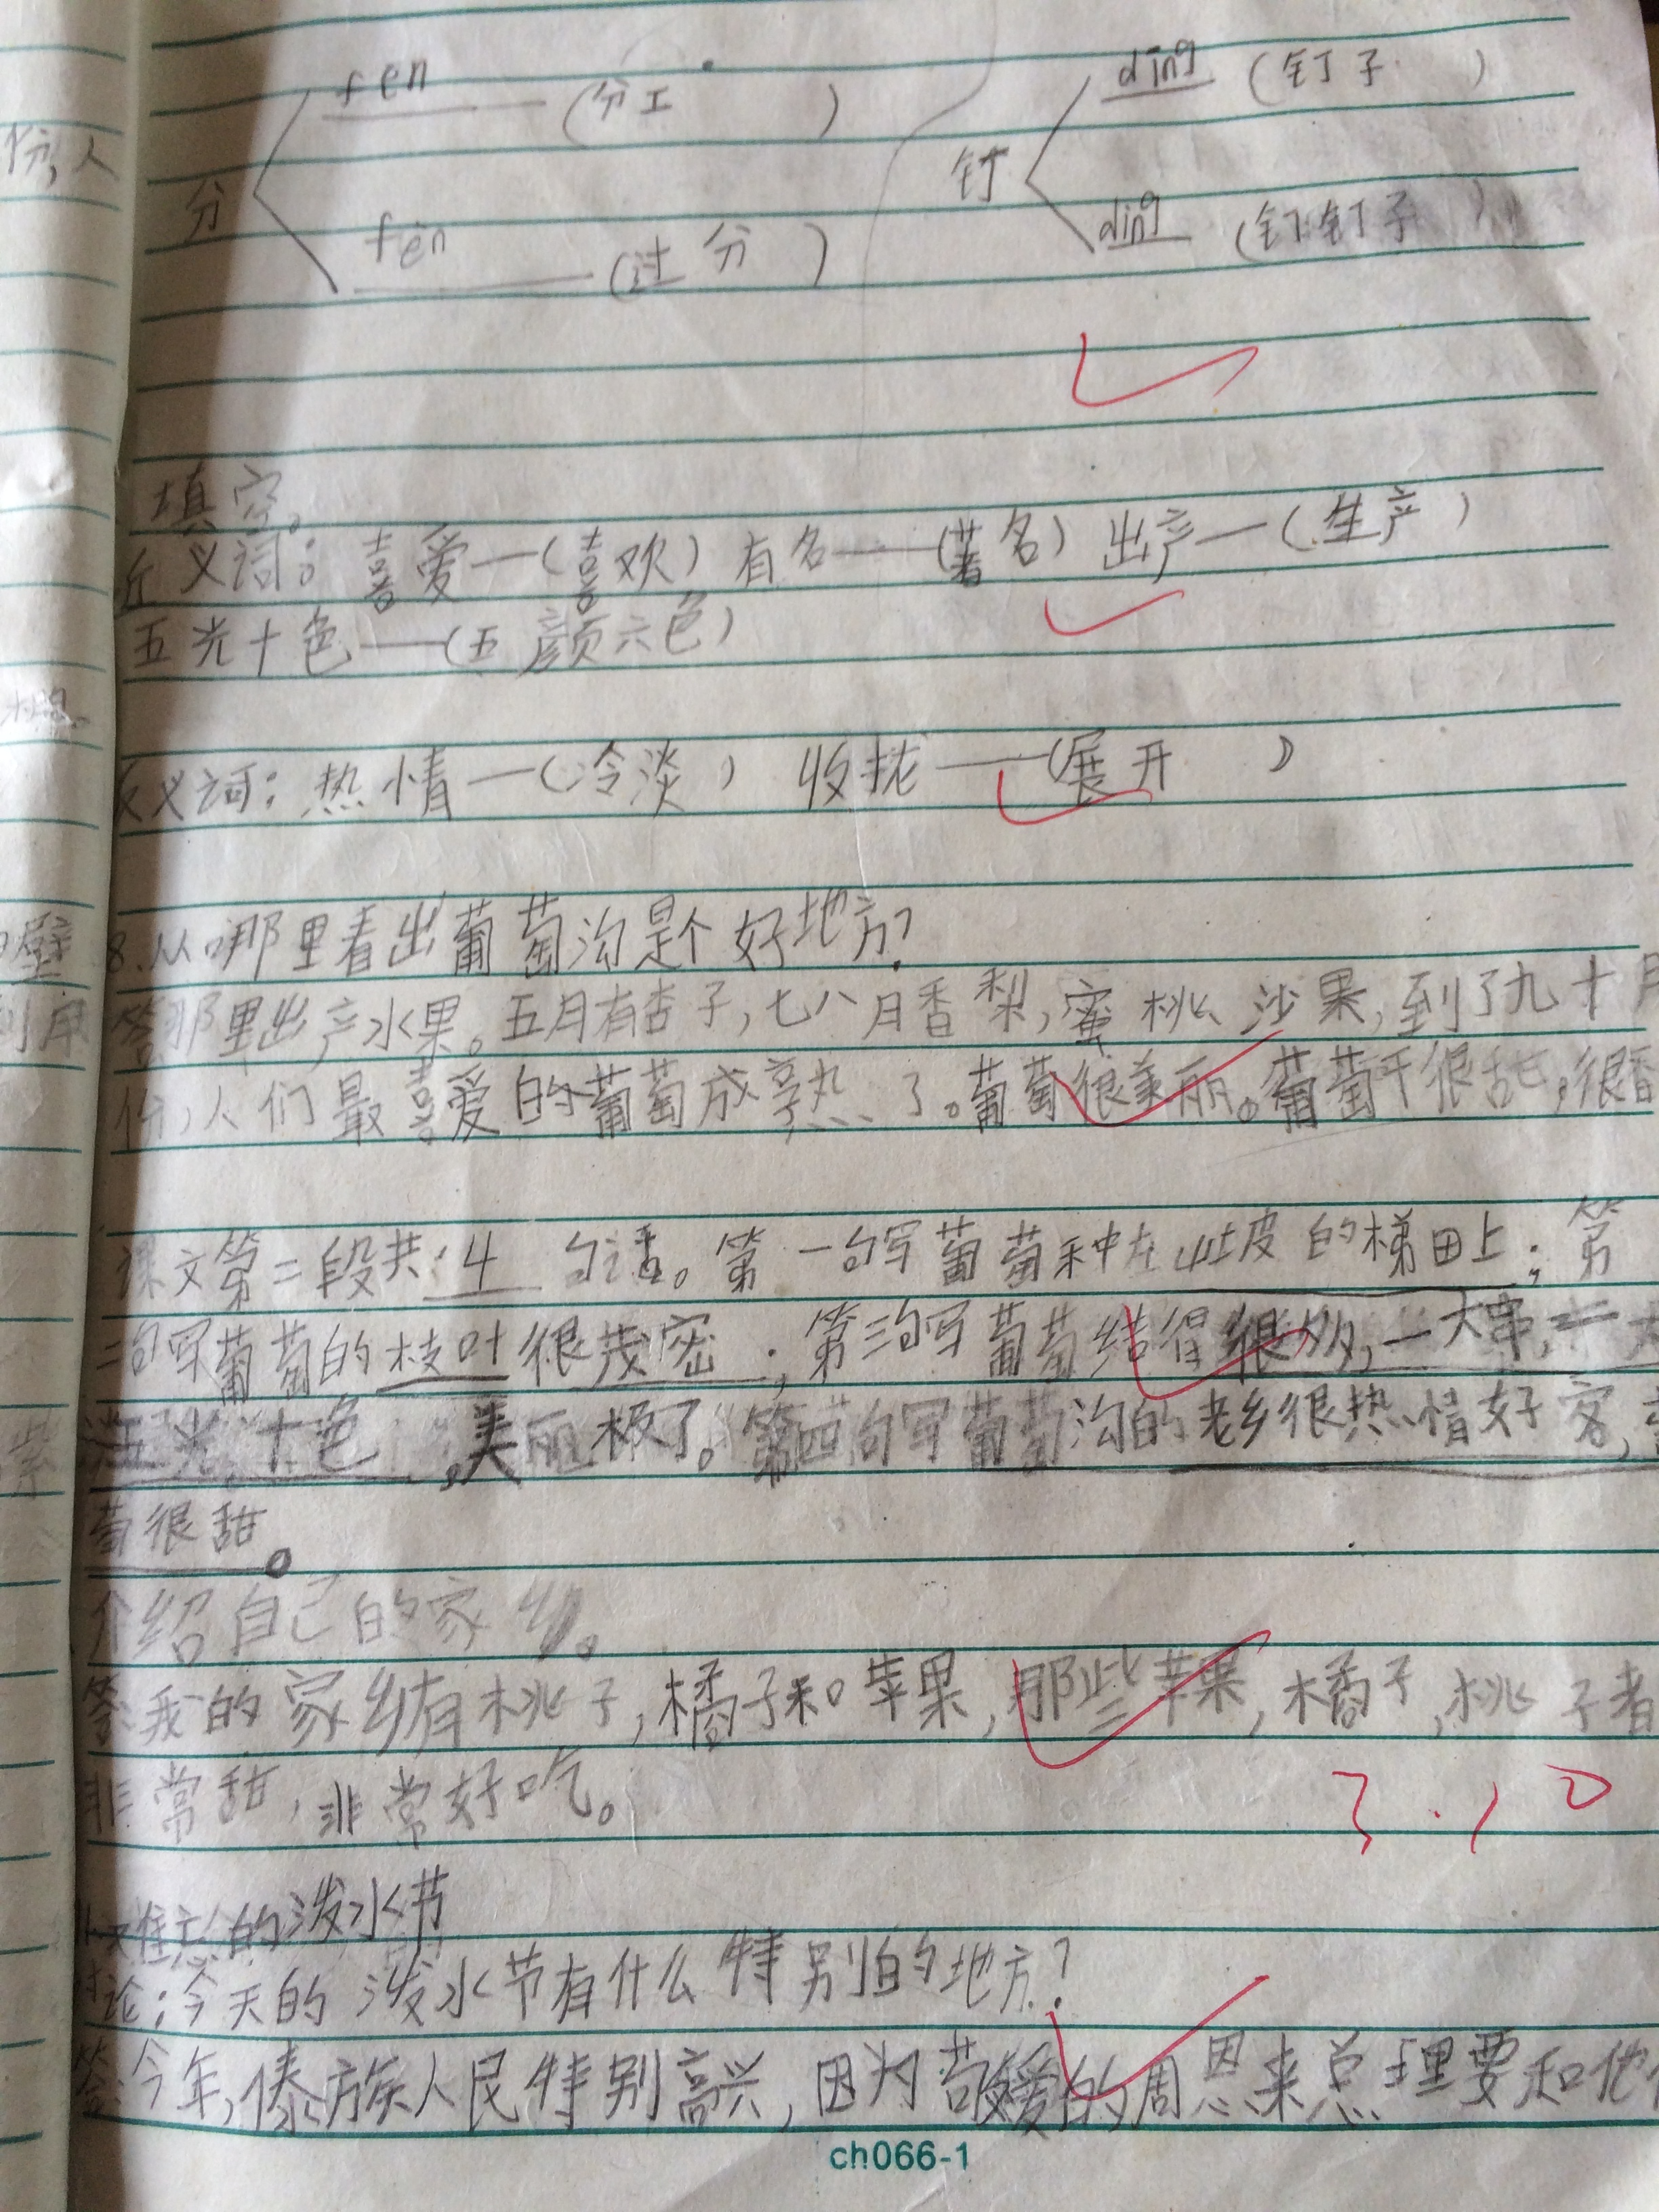 fēn (分工) dīng (钉子)
分 钉
fèn (过分) dìng (钉钉子)
填空。
近义词：喜爱—(喜欢) 有名——(著名) 出产—(生产)
五光十色——(五颜六色)
反义词：热情—(冷淡) 收拢——(展开)
8.从哪里看出葡萄沟是个好地方？
答:那里出产水果。五月有杏子,七八月香梨,蜜桃、沙果,到了九十月
份,人们最喜爱的葡萄成熟了。葡萄很美丽。葡萄干很甜,很香
课文第二段共4句话。第一句写葡萄种在山坡的梯田上；第
二句写葡萄的枝叶很茂密；第三句写葡萄结得很多,一大串,一大
五光十色,美丽极了。第四句写葡萄沟的老乡很热情好客,葡
萄很甜。
介绍自己的家乡。
答:我的家乡有桃子,橘子和苹果,那些苹果,橘子,桃子者
非常甜,非常好吃。
3.10
难忘的泼水节
讨论:今天的泼水节有什么特别的地方?
答:今年,傣族人民特别高兴,因为敬爱的周恩来总理要和他们
ch066-1
份,人
壁
到用
紫